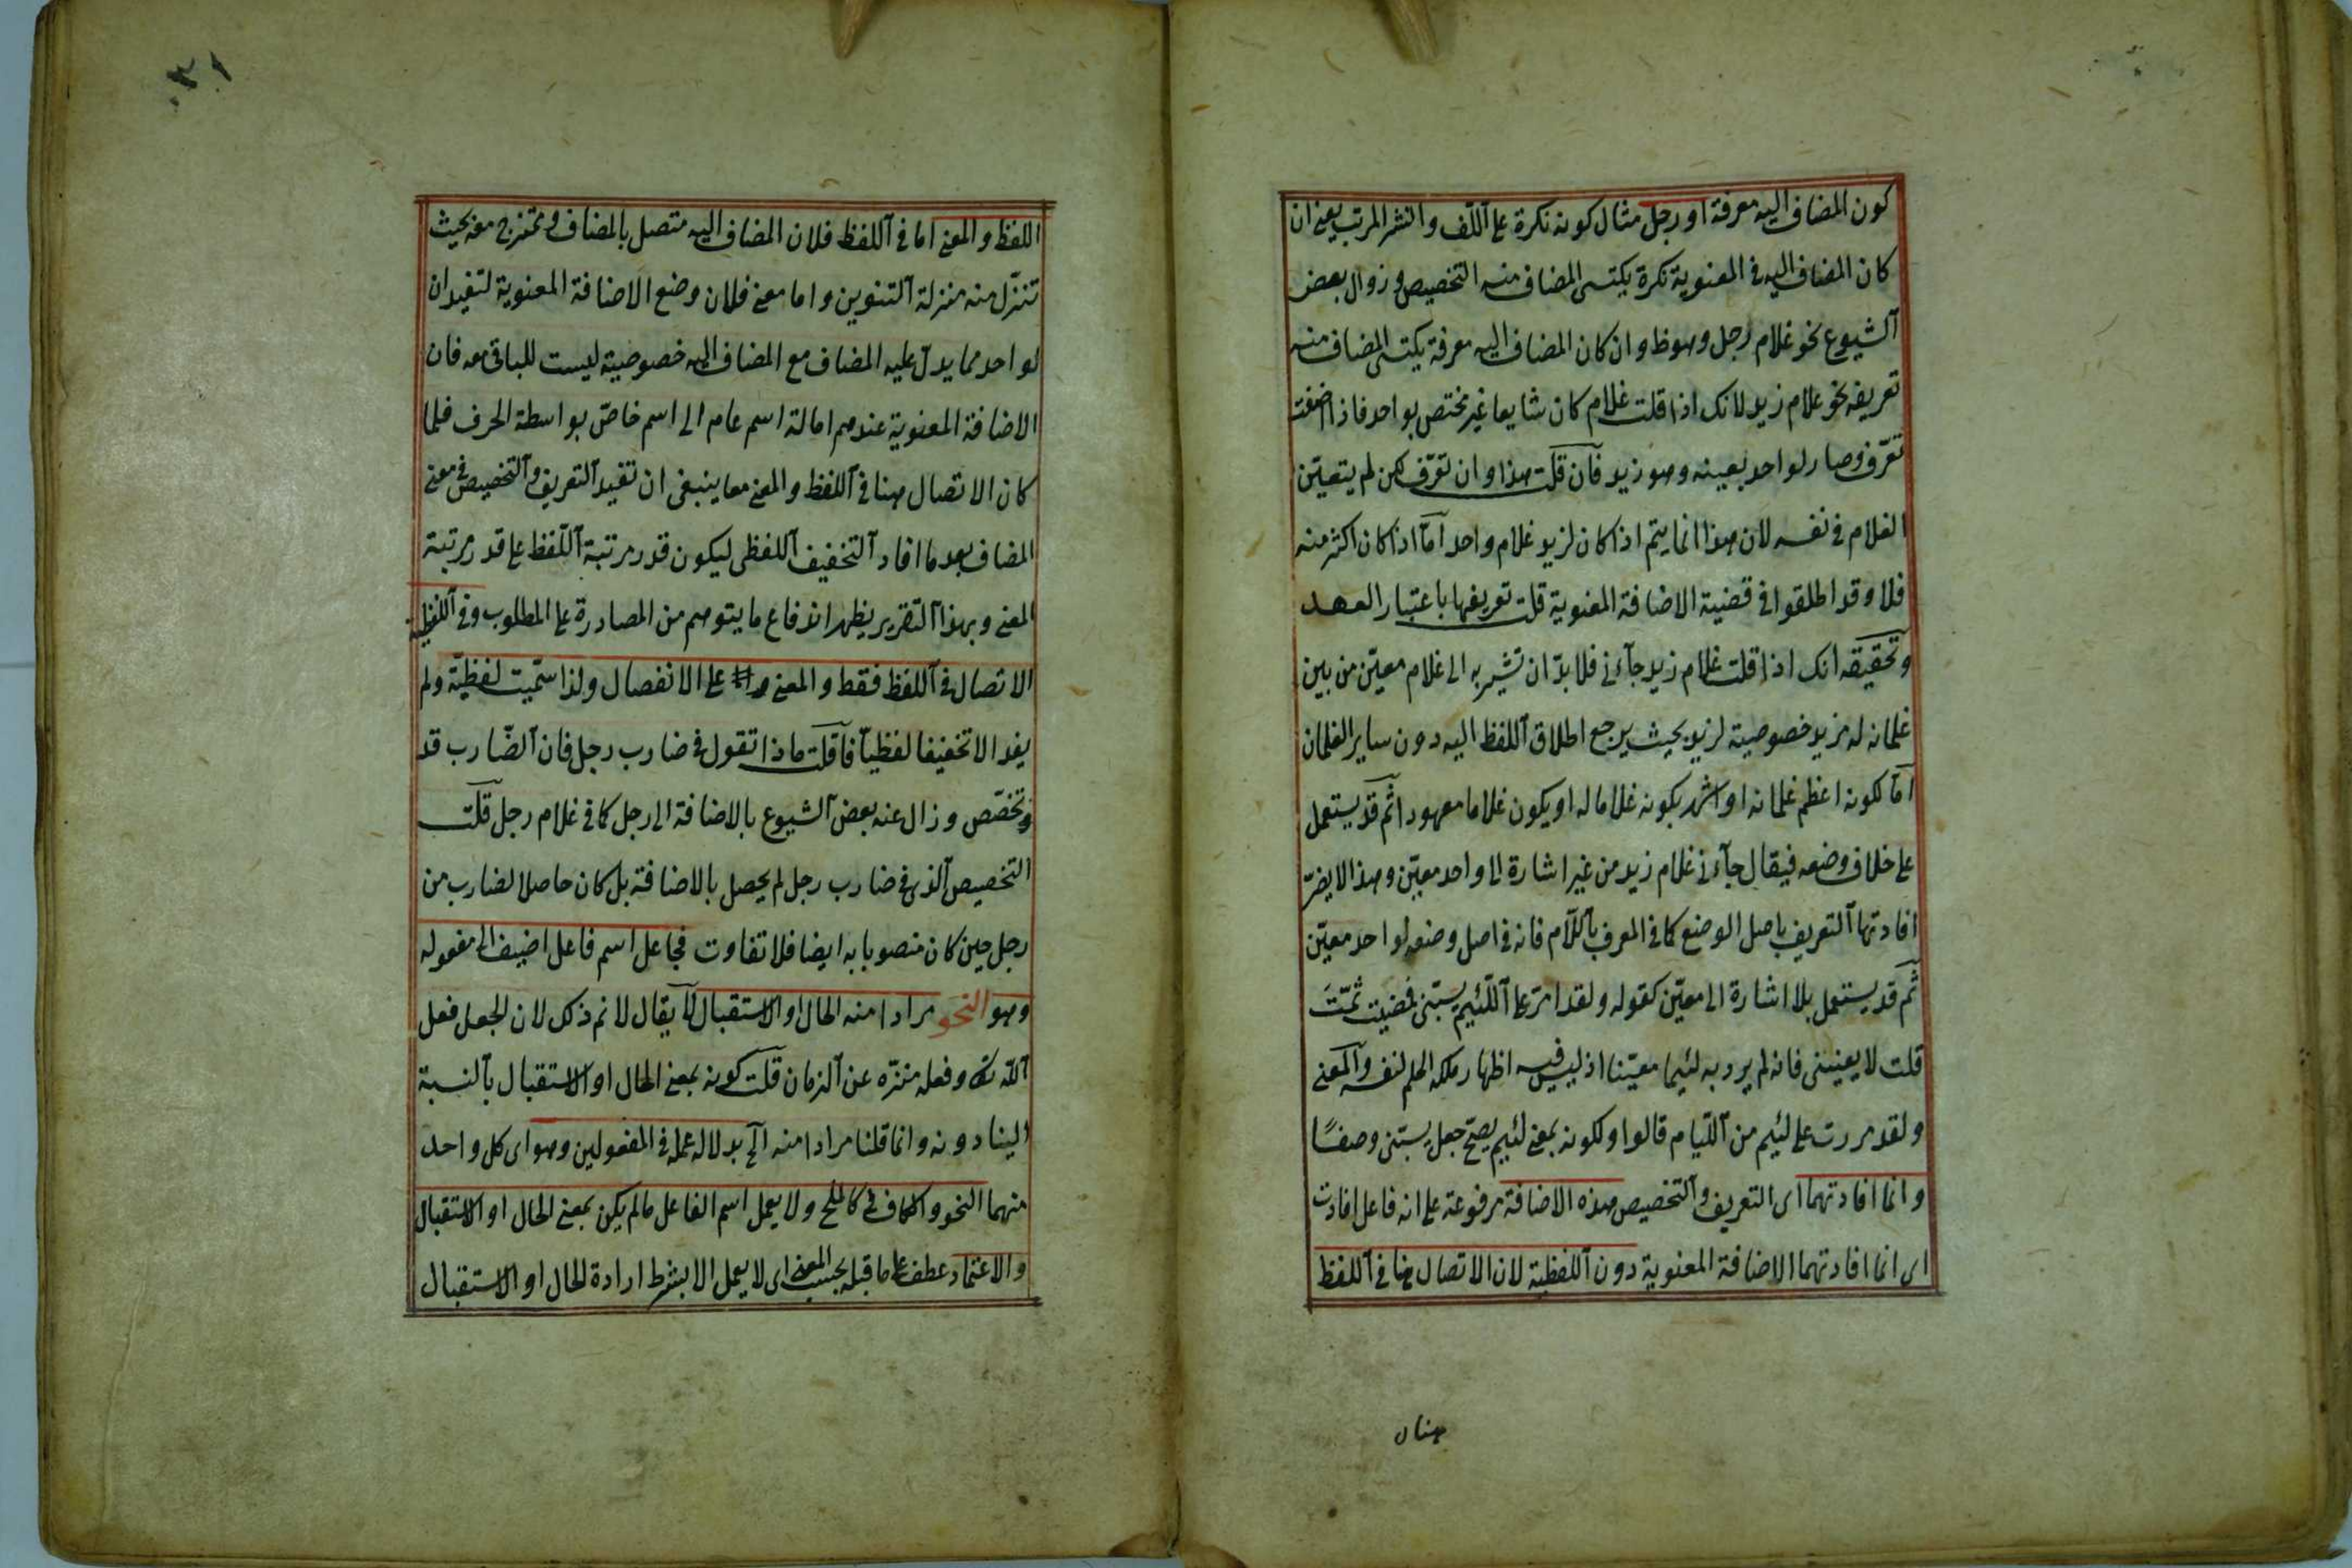 كون المضاف اليه معرفة او رجل مثال كونه نكرة على اللّف والنشر المرتب يعنى ان
كان المضاف اليه فى المعنوية نكرة يكتسى المضاف منه التخصيص وزوال بعض
الشيوع نحو غلام رجل وهو ظ وان كان المضاف اليه معرفة يكتسى المضاف منه
تعريفه نحو غلام زيد لانك اذا قلت غلام كان شايعا غير مختص بواحد فاذا اضفت
تعرّف وصار لواحد بعينه وهو زيد فان قلت هذا وان تعرّف لكن لم يتعيّن
الغلام فى نفسه لان هذا انما يتم اذا كان لزيد غلام واحد امّا اذا كان اكثر منه
فلا وقد اطلقوا فى قضية الاضافة المعنوية قلت تعريفها باعتبار العهد
وتحقيقه انك اذا قلت غلام زيد جاءنى فلا بدّ ان تشير به الى غلام معيّن من بين
غلمانه له مزيد خصوصية لزيد بحيث يرجع اطلاق اللفظ اليه دون ساير الغلمان
امّا لكونه اعظم غلمانه او اشهر بكونه غلاما له او يكون غلاما معهودا ثم قد يستعمل
على خلاف وضعه فيقال جاءنى غلام زيد من غير اشارة الى واحد معيّن وهذا لا يضرّ
افادتها التعريف باصل الوضع كما فى المعرف باللّام فانه فى اصل وضعه لواحد معيّن
ثم قد يستعمل بلا اشارة الى معيّن كقوله ولقد امرّ على اللّئيم يسبّنى فمضيت ثمّتَ
قلت لا يعنينى فانه لم يرد به لئيما معيّنا اذ ليس فيه اظهار ملكه الحلم لنفسه والمعنى
ولقد مررت على لئيم من اللّيام قالوا ولكونه بمعنى لئيم يصحّ جعل يسبّنى وصفًا
وانما افادتهما اى التعريف والتخصيص هذه الاضافة مرفوعة على انه فاعل افادت
اى انما افادتهما الاضافة المعنوية دون اللفظية لان الاتصال هنا فى اللفظ
هنا
٣١
اللفظ والمعنى اما فى اللفظ فلان المضاف اليه متصل بالمضاف وممتزج معه بحيث
تنزّل منه منزلة التنوين واما معنى فلان وضع الاضافة المعنوية لتفيد ان
لواحد مما يدلّ عليه المضاف مع المضاف اليه خصوصية ليست للباقى معه فان
الاضافة المعنوية عندهم امالة اسم عام الى اسم خاصّ بواسطة الحرف فلما
كان الاتصال هنا فى اللفظ والمعنى معا ينبغى ان تفيد التعريف والتخصيص فى معنى
المضاف بعد ما افاد التخفيف اللفظى ليكون قدر مرتبة اللّفظ على قدر مرتبة
المعنى وبهذا التقرير يظهر اندفاع ما يتوهم من المصادرة على المطلوب وفى اللفظية
الاتصال فى اللفظ فقط والمعنى على الانفصال ولذا سمّيت لفظيّة ولم
يفد الا تخفيفا لفظيا فان قلت ماذا تقول فى ضارب رجل فان الضّارب قد
تخصّص وزال عنه بعض الشيوع بالاضافة الى رجل كما فى غلام رجل قلت
التخصيص الذى فى ضارب رجل لم يحصل بالاضافة بل كان حاصلا لضارب من
رجل حين كان منصوبا به ايضا فلا تفاوت فجاعل اسم فاعل اضيف الى مفعوله
وهو النحو مرادا منه الحال او الاستقبال لا يقال لا نم ذلك لان الجعل فعل
اللّه تع وفعله منزّه عن الزمان قلت كونه بمعنى الحال او الاستقبال بالنسبة
الينا دونه وانما قلنا مرادا منه الخ بدلالة عمله فى المفعولين وهو اى كل واحد
منهما النحو والكاف فى كالملح ولا يعمل اسم الفاعل مالم يكن بمعنى الحال او الاستقبال
والاعتماد عطف على ما قبله بحسب المعنى اى لا يعمل الا بشرط ارادة الحال او الاستقبال